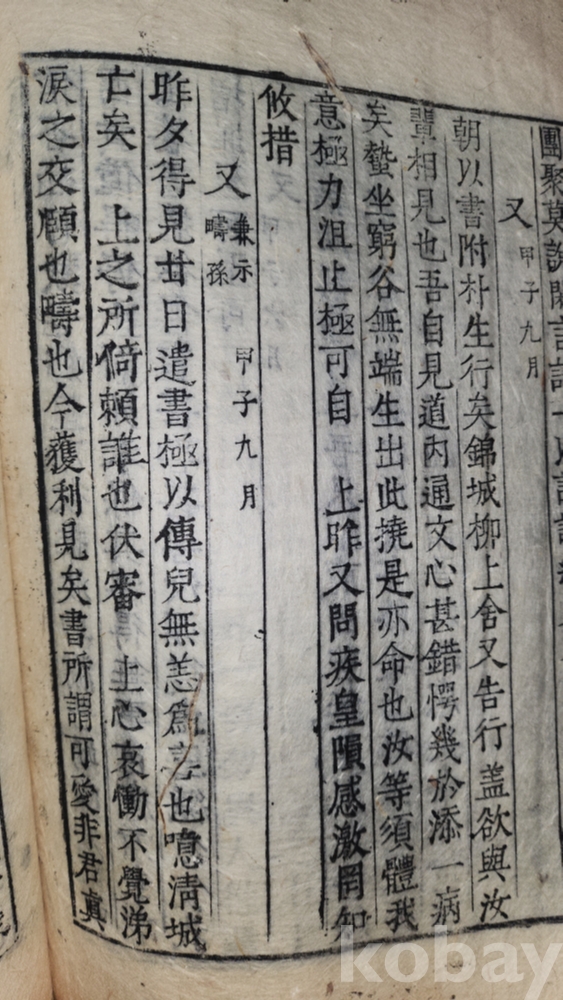 團聚莫說閑言
又 甲子九月
朝以書附朴生行矣錦城柳上舍又告行盖欲與汝
輩相見也吾自見道內通文心甚錯愕幾於添一病
矣蟄坐窮谷無端生出此撓是亦命也汝等須體我
意極力沮止極可自 上昨又問疾皇隕感激罔知
攸措
又 兼示疇孫 甲子九月
昨夕得見廿日遣書極以傳兒無恙爲 也噫淸城
亡矣 上之所倚賴誰也伏審 上心哀慟不覺涕
淚之交頤也疇也今獲利見矣書所謂可愛非君眞
kobay